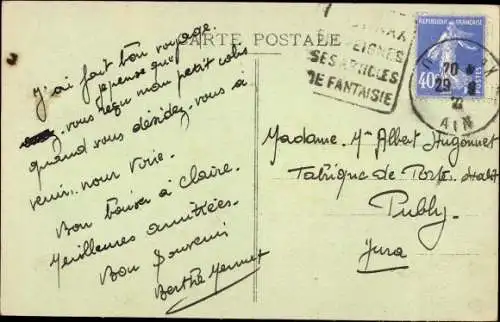 CARTE POSTALE
J'ai fait bon voyage.
je pense que
vous reçu mon petit colis
quand vous décidez vous à
venir nous voir.
Bon baiser à Claire.
Meilleures amitiées.
Bon Souvenir
Berthe
SES ARTICLES
DE FANTAISIE
REPUBLIQUE FRANÇAISE
40c
POSTES
AIN
Madame Mme Albert Hugonnet
Fabrique de
Publy
Jura